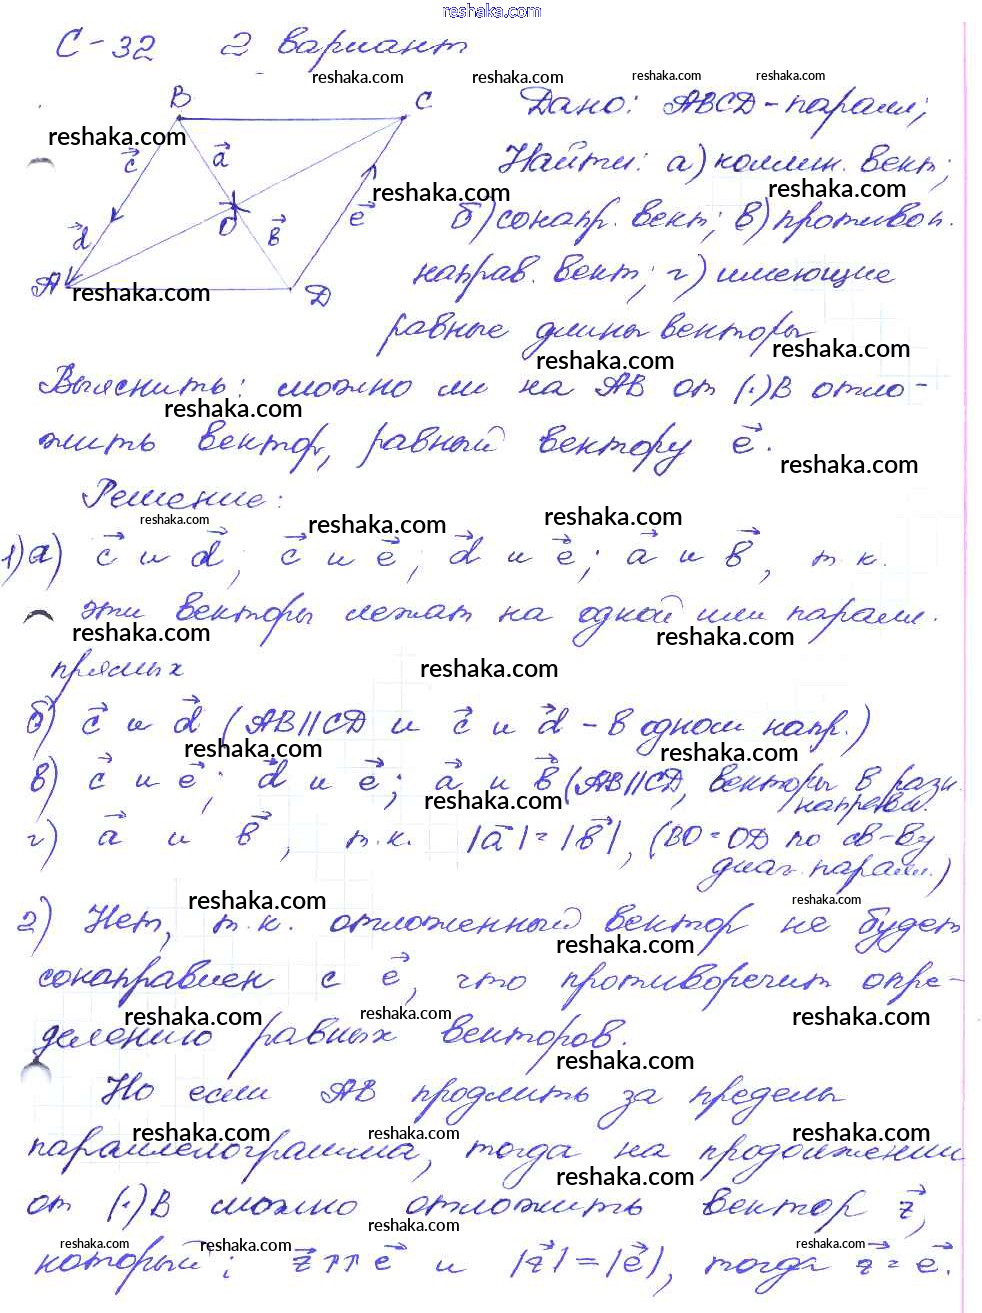 reshaka.com
С-32 2 вариант
reshaka.com reshaka.com reshaka.com reshaka.com
B C Дано: ABCD-паралл;
reshaka.com
c a Найти: а) коллин. вект;
reshaka.com reshaka.com
d O b e б) сонапр. вект; в) противоп.
A D направ. вект; г) имеющие
reshaka.com
равные длины векторы
reshaka.com reshaka.com
Выяснить: можно ли на AB от (·)B отло-
reshaka.com
жить вектор, равный вектору e⃗.
reshaka.com
Решение:
reshaka.com reshaka.com reshaka.com
1) а) c⃗ и d⃗; c⃗ и e⃗; d⃗ и e⃗; a⃗ и b⃗, т.к.
эти векторы лежат на одной или паралл.
reshaka.com reshaka.com
прямых
reshaka.com
б) c⃗ и d⃗ (AB||CD и c⃗ и d⃗ - в одном напр.)
reshaka.com reshaka.com
в) c⃗ и e⃗; d⃗ и e⃗; a⃗ и b⃗ (AB||CD, векторы в разн.
направл.
reshaka.com
г) a⃗ и b⃗, т.к. |a⃗|=|b⃗|, (BO=OD по св-ву
диаг. паралл.)
reshaka.com reshaka.com
2) Нет, т.к. отложенный вектор не будет
reshaka.com
сонаправлен с e⃗, что противоречит опре-
reshaka.com reshaka.com reshaka.com
делению равных векторов.
reshaka.com
Но если AB продлить за пределы
reshaka.com reshaka.com reshaka.com
параллелограмма, тогда на продолжении
reshaka.com
от (·)B можно отложить вектор z⃗,
reshaka.com
reshaka.com reshaka.com reshaka.com
который: z⃗↑↑e⃗ и |z⃗|=|e⃗|, тогда z⃗=e⃗.